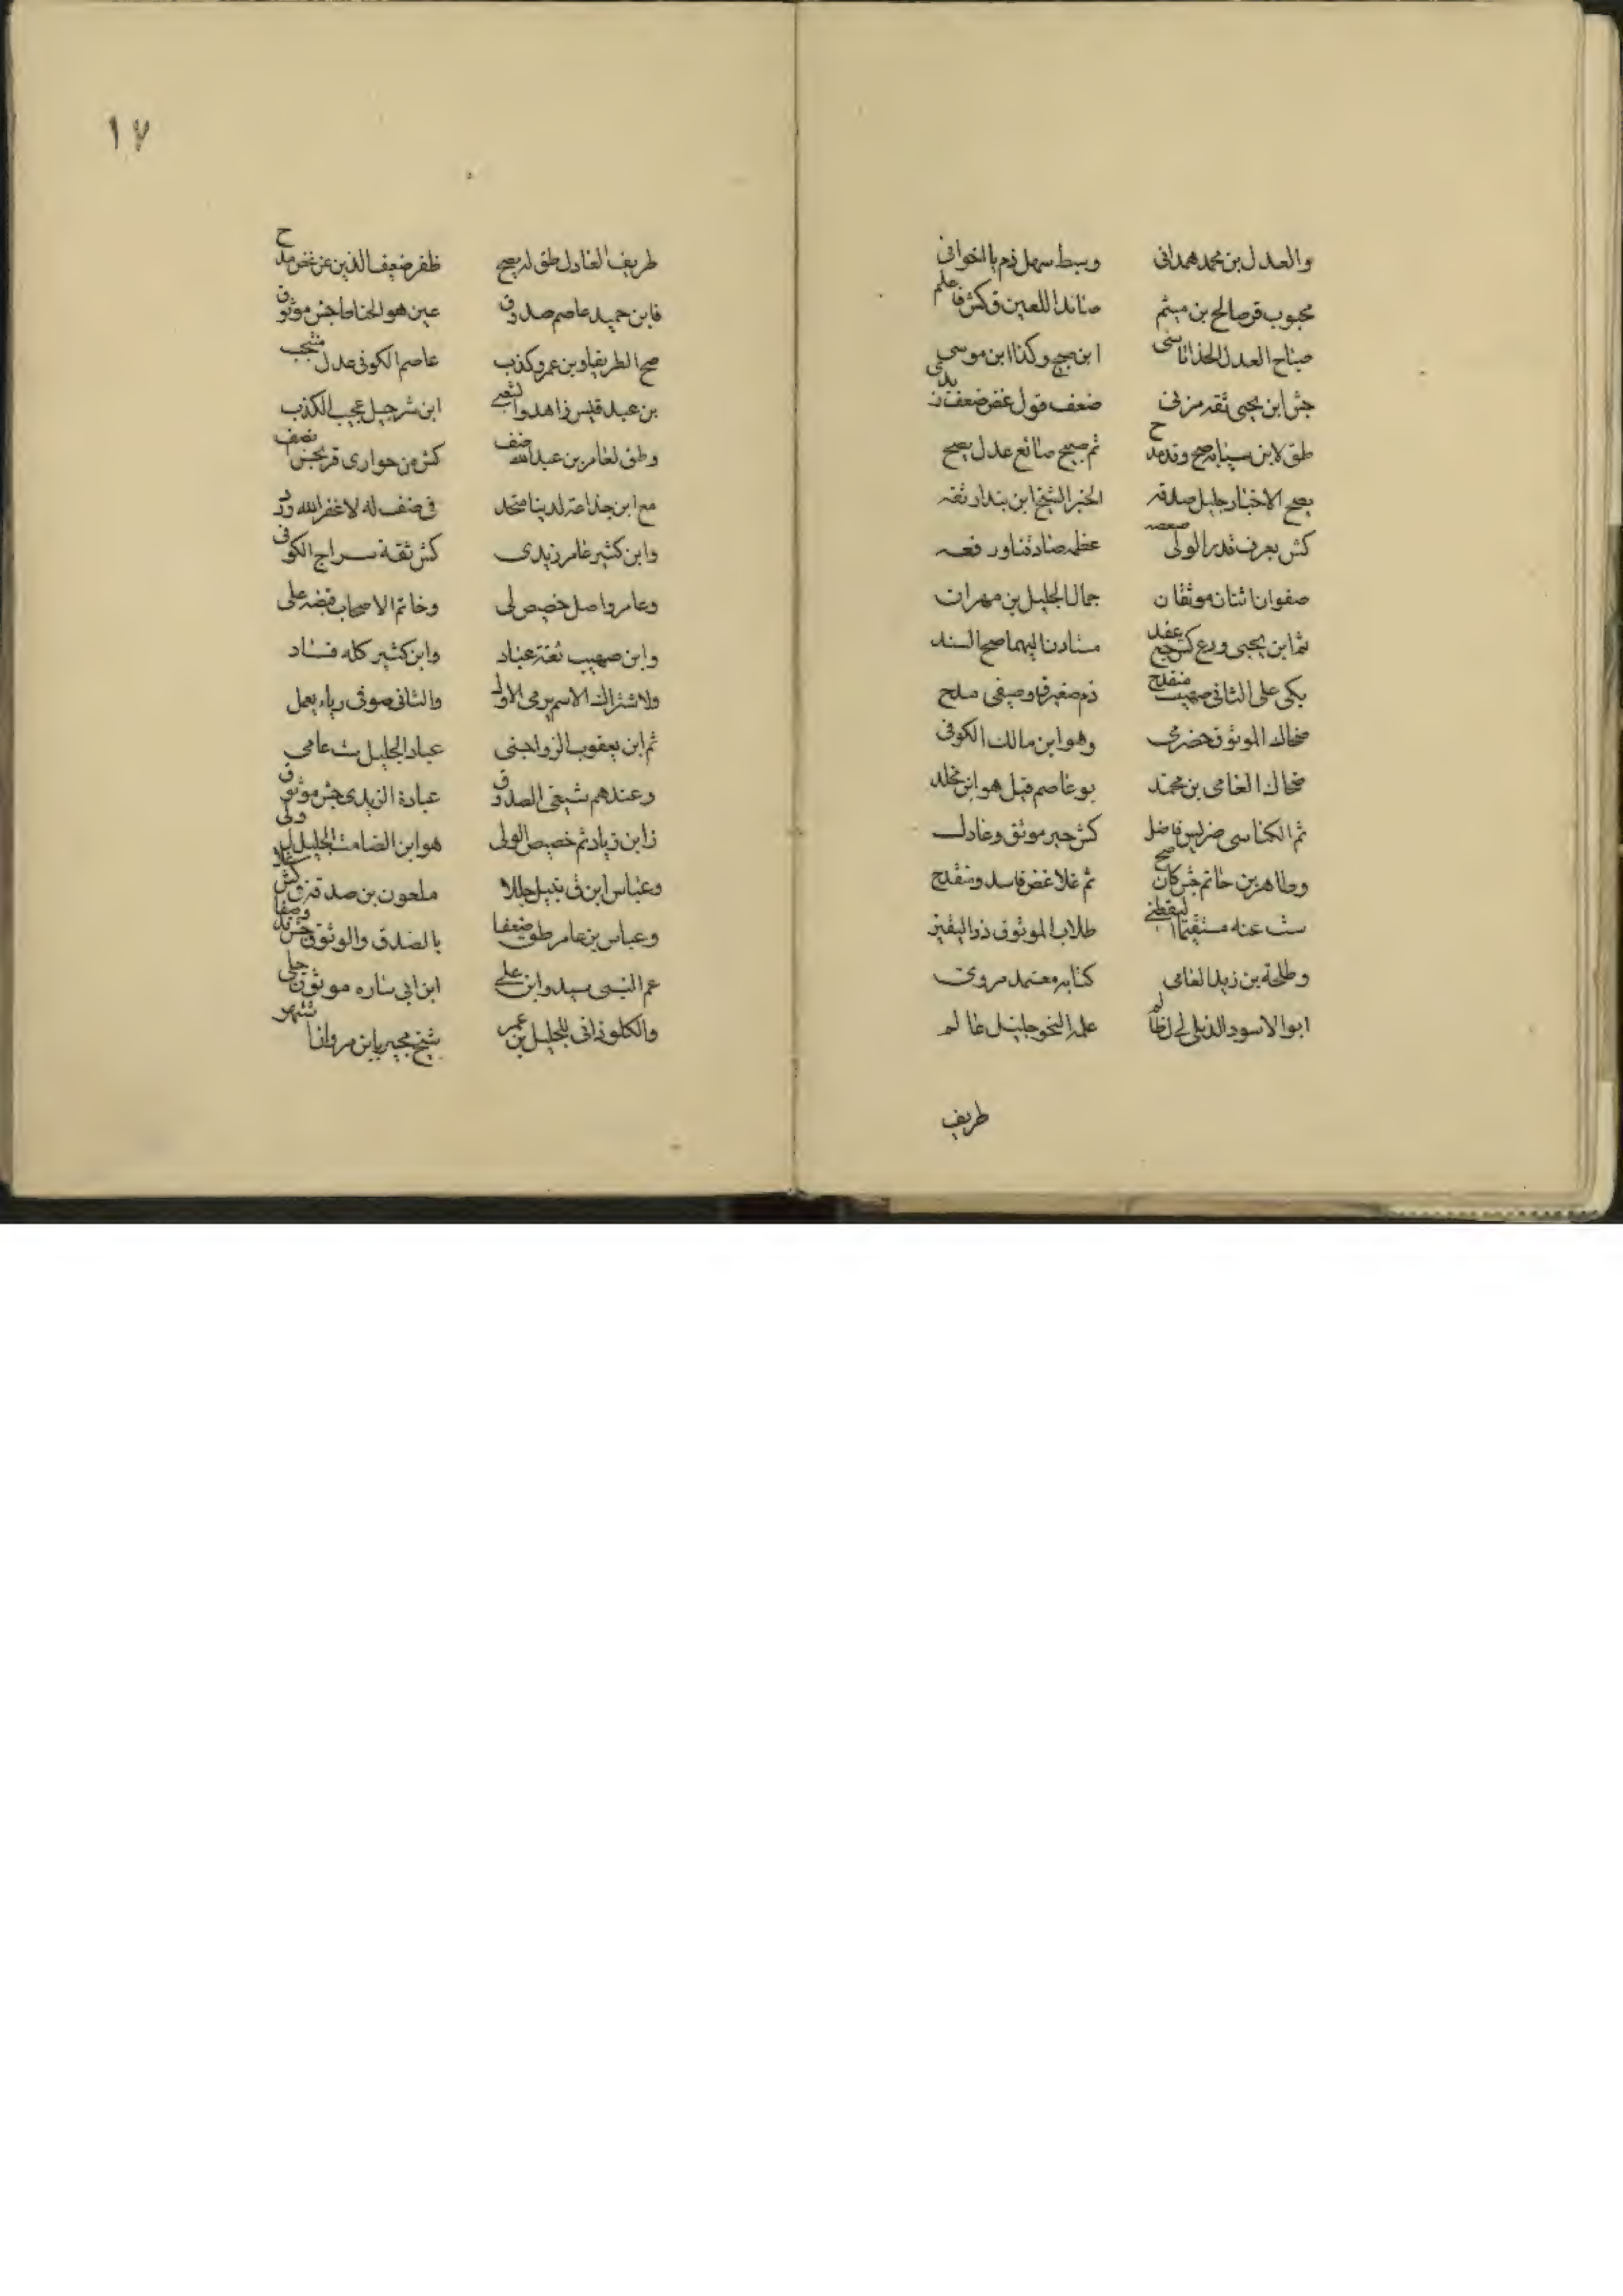 والعدل بن محمد همدانی وسبط سهل ذم بالخوانی
محبوب قر صالح بن میثم صائد اللعین ق کش فاعلم
صباح العدل الحذاناسی ابن صبیح وکذا ابن موسی
جش ابن یحیی ثقة مزنی ضعف قول غض ضعف
طق لابن سیابة صح وقد مدح ثم صبیح صائغ عدل یصح
یصح الاخبار جلیل صدقه الخبر الشیخ ابن بندار ثقه
کش یعرف قدر الولی صعصعه عظمه صادقنا ورفعه
صفوان اثنان موثقان جمال الجلیل بن مهران
ثم ابن یحیی ورع کش اسنادنا الیهما صح السند
بکی علی الثانی صهیب منقدح ذم صغیر قد وصیفی ملح
ضحاک الموثوق حضرمی وهو ابن مالک الکوفی
ضحاک العامی بن محمد بو عاصم قیل هو ابن مخلد
ثم الکناسی ضریس فاضل کش خیر موثق وعادل
وطاهر بن حاتم جش کان صح ثم غلا غض فاسد ومنقدح
ست عنه مستقیما طلاب الموثوق ذو الیقین
وطلحة بن زید العامی کتابه معتمد مروی
ابو الاسود الدئلی لی ظالم علمه النحو جلیل عالم
طریف
١٧
طریف العادل طق له یصح ظفر ضعیف الدین عن غض مدح
فابن حمید عاصم صدوق عین هو الحناط جش موثوق
صح الطریفا وبن عمر وکذب عاصم الکوفی عدل منتجب
بن عبد قیس زاهد والشعبی ابن شرحیل عجیب الکذب
وطق لعامر بن عبد الله ضف کش من حواری قر بجش نصف
مع ابن جذاعة لدینا متحد فی ضنف له لا غفر الله ورد
وابن کثیر عامر زیدی کش ثقة سراج الکوفی
وعامر واصل خصیص لی وخاتم الاصحاب قبضه علی
وابن صهیب ثقة عباد وابن کثیر کله فساد
ولاشتراک الاسم یرمی الاول والثانی صوفی ریاء یعمل
ثم ابن یعقوب الرواجنی عباد الجلیل ست عامی
وعندهم شیعی الصدوق عبادة الزیدی جش موثوق
زابن زیاد ثم خصیص الولی هو ابن الصامت الجلیل لی ولی
وعباس ابن فی بخیل جللا ملعون بن صدقة
وعباس بن عامر طق ضعفا بالصدق والوثوق جش وصفا
عم النبی سید وابن علی ابن ابی ساره موثوق جلی
والکلوذانی الجلیل بن عمر شیخ مجیز بابن مروان اشتهر